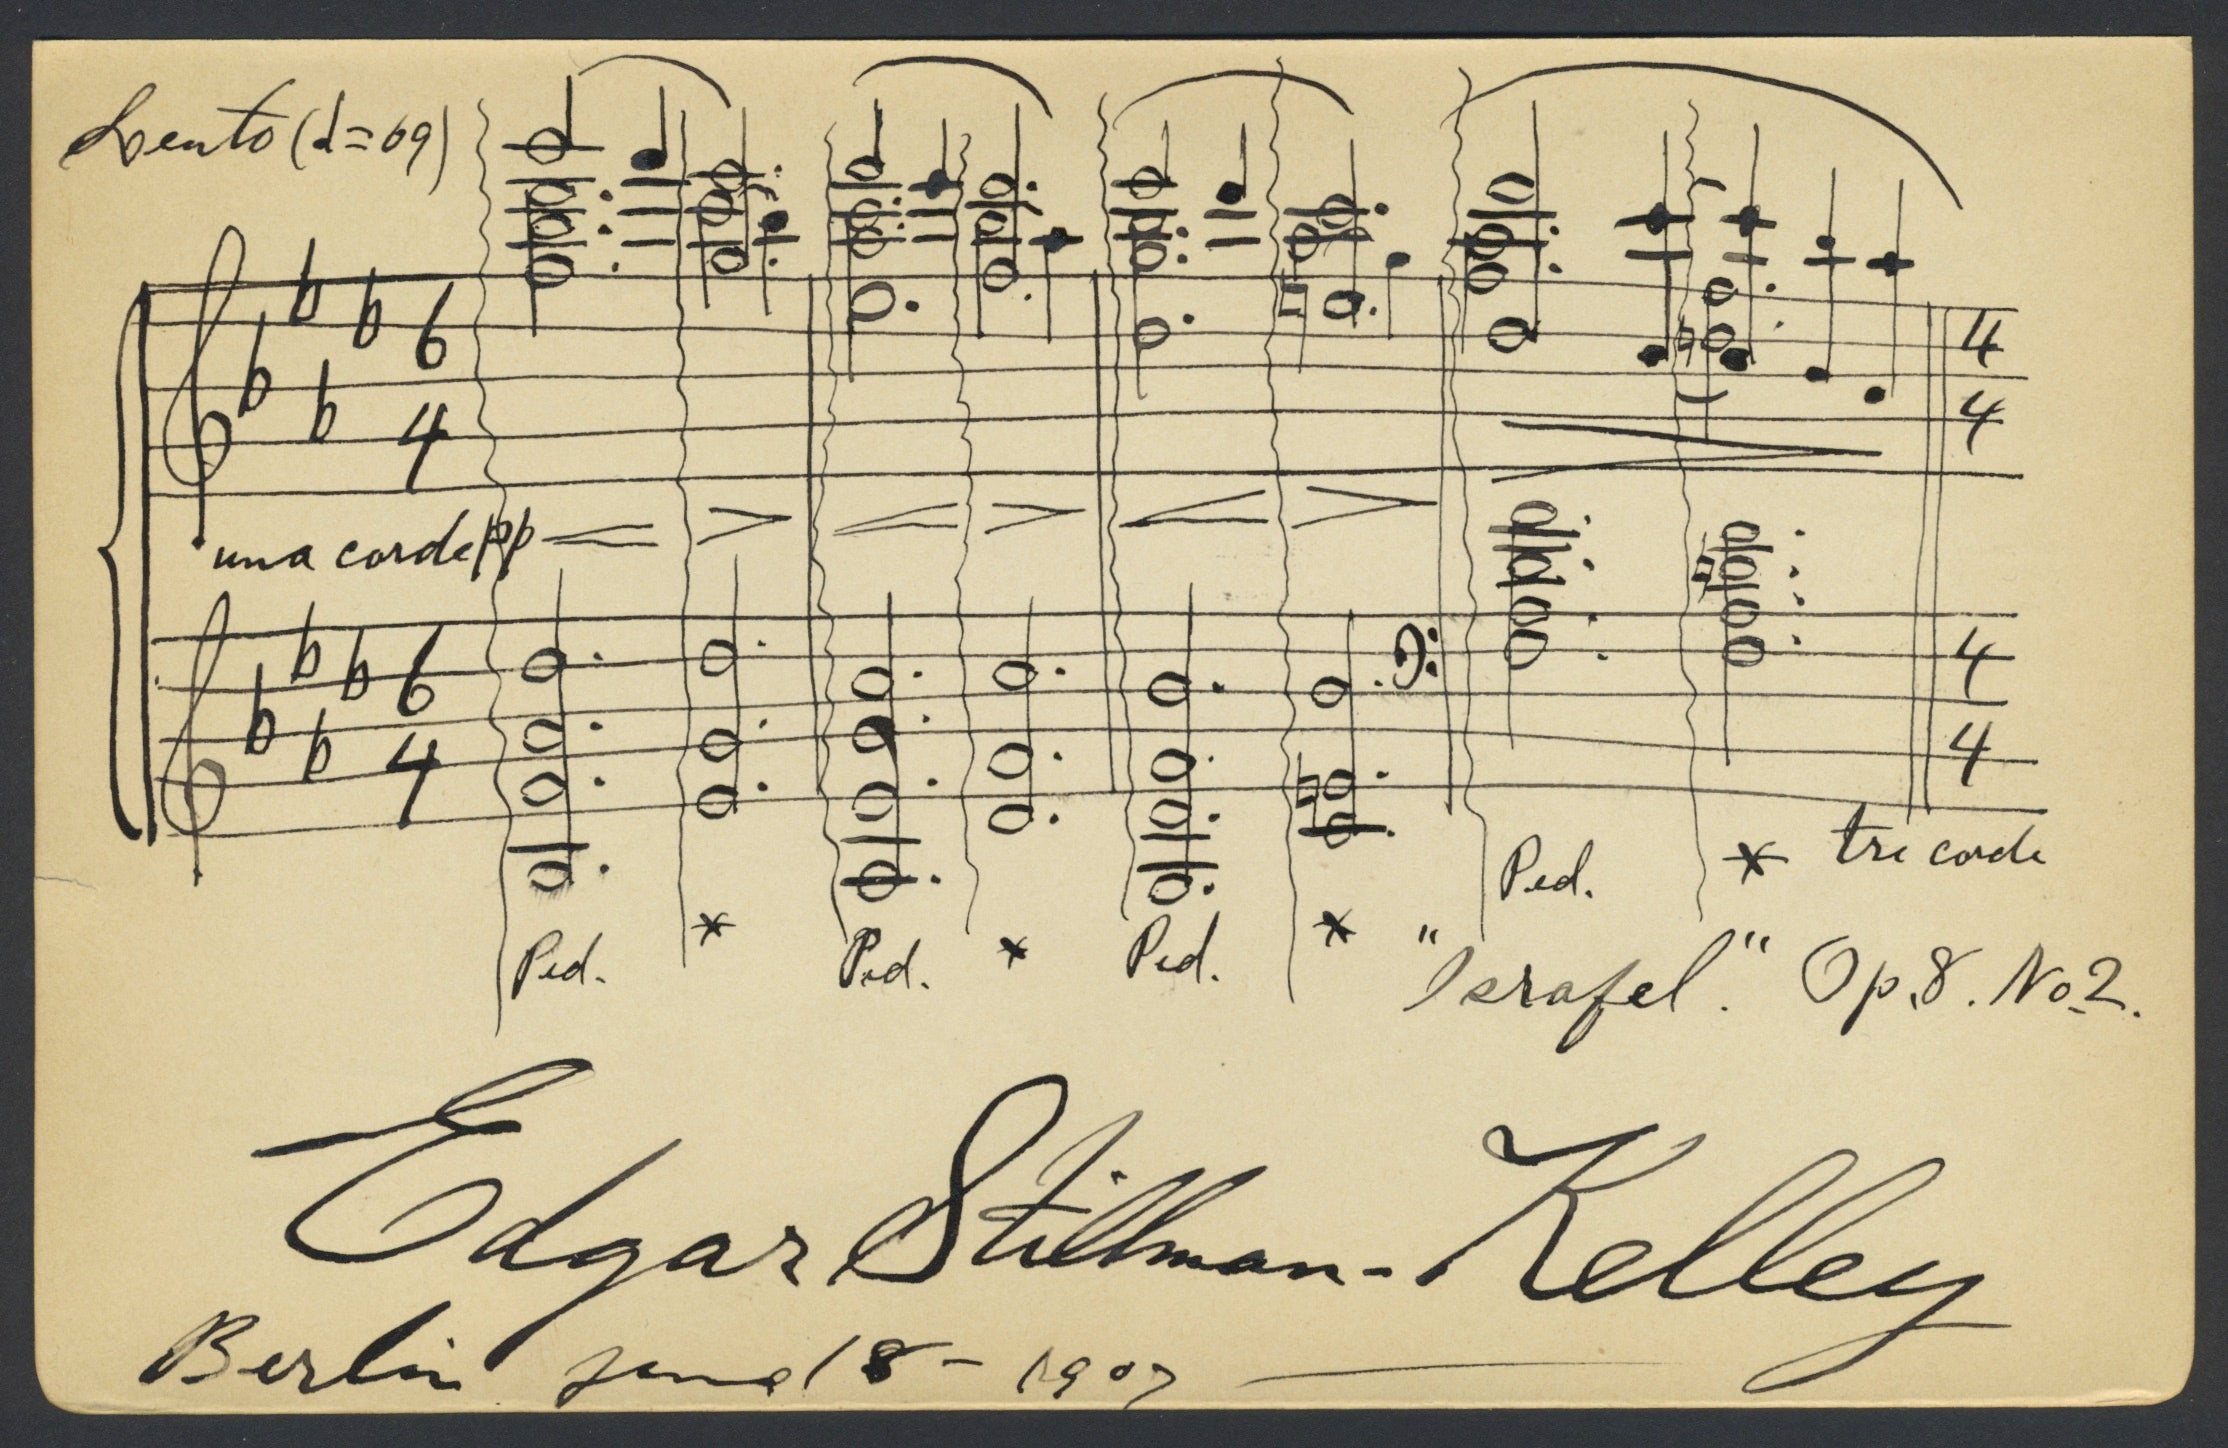 Lento (𝅗𝅥=69)
6 4
4 4
una corde pp
6 4
4 4
Ped. * Ped. * Ped. * Ped. * tre corde
"Israfel." Op. 8. No 2.
Edgar Stillman-Kelley
Berlin June 18 - 1907